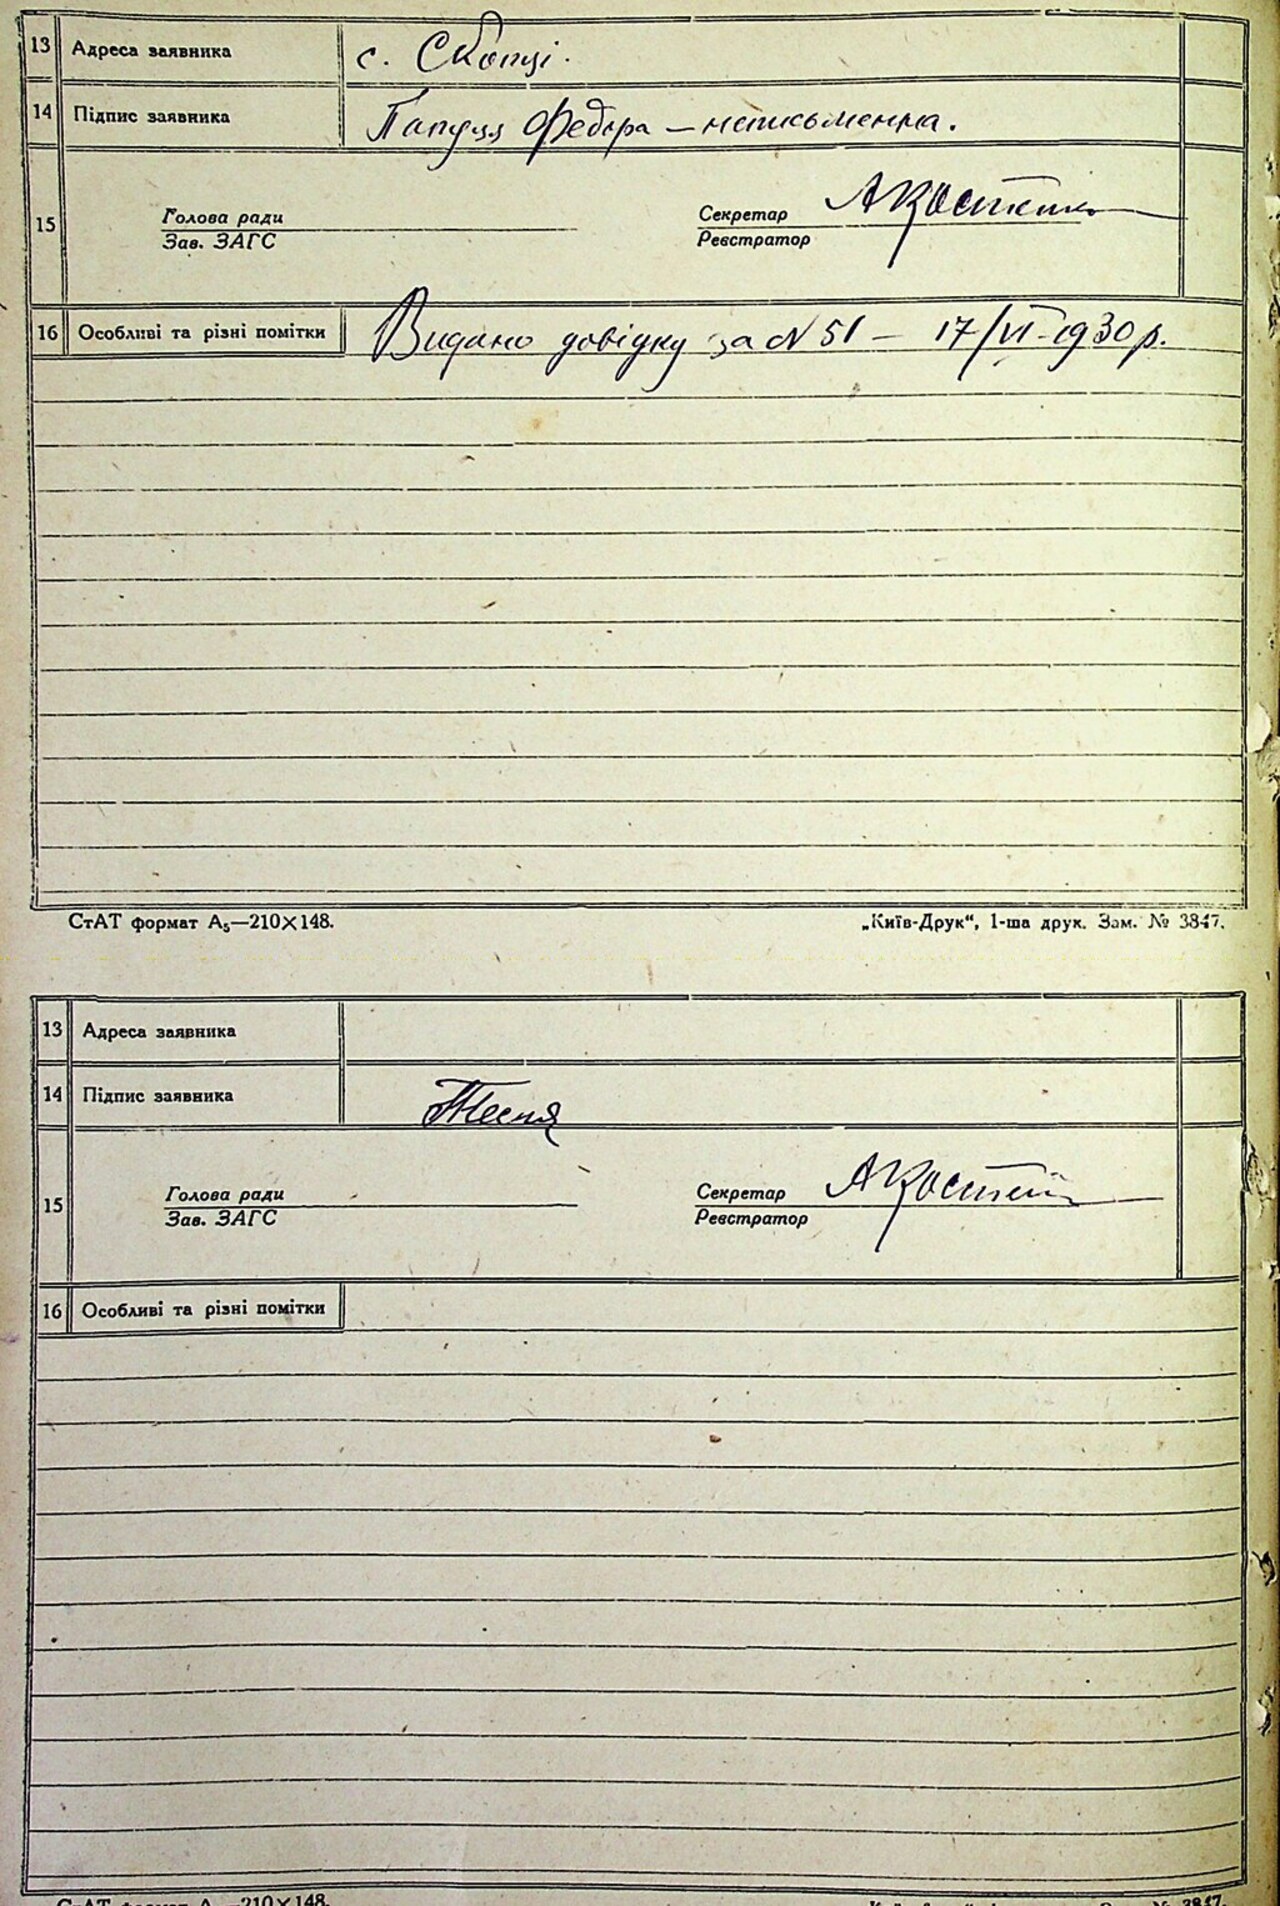 13 Адреса заявника с. Скопці.
14 Підпис заявника Федора – неписьменна.
15 Голова ради Секретар АКостенко
Зав. ЗАГС Реєстратор
16 Особливі та різні помітки Видано довідку за N 51 – 17/VI-1930 р.
СтАТ формат А₅—210×148. „Київ-Друк“, 1-ша друк. Зам. № 3847.
13 Адреса заявника
14 Підпис заявника
15 Голова ради Секретар АКостенко
Зав. ЗАГС Реєстратор
16 Особливі та різні помітки
СтАТ формат А₅—210×148. „Київ-Друк“, 1-ша друк. Зам. № 3847.